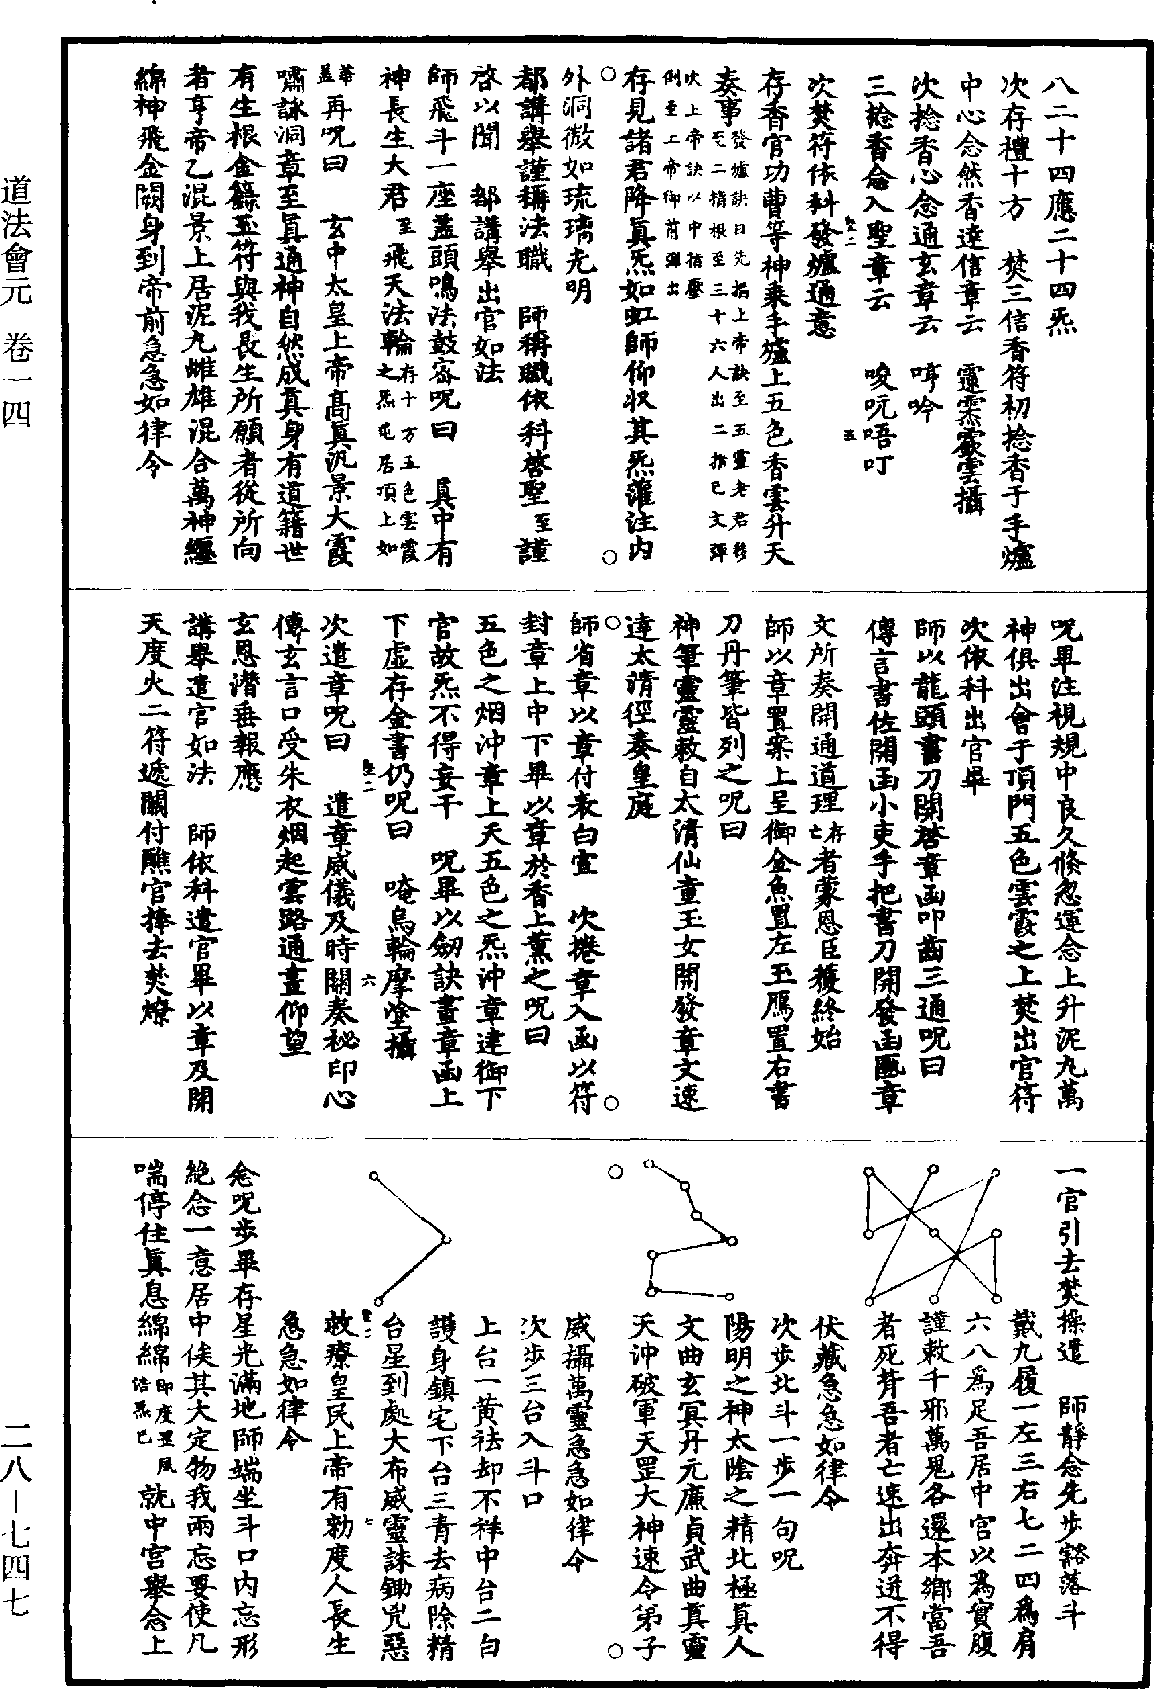 八二十四應二十四炁
次存禮十方　焚三信香符初捻香于手爐
中心念然香達信章云　靈䨺霐雲攝
次捻香心念通玄章云　哼吟
三捻香念入聖章云　唆吭唔叮
次焚符依科發爐通意
存香官功曹等神乗手爐上五色香雲升天
奏事發爐訣曰先掐上帝訣至五靈老君移
至二指根至三十六人出二指已文彈
吹上帝訣以中指壓
倒至上帝御前彈出
存見諸君降真炁如虹師仰収其炁灌注内
外洞徹如琉璃光明
都講舉謹稱法職　師稱職依科啓聖至謹
啓以聞　都講舉出官如法
師飛斗一座蓋頭鳴法鼓密呪曰　真中有
神長生大君至飛天法輪存十方五色雲霞
之炁屯居頂上如
華
蓋再呪曰　玄中太皇上帝髙真汎景大霞
嘯詠洞章至真通神自然成真身有道籍世
有生根金籙玉符與我長生所願者從所向
者亨帝乙混景上居泥丸雌雄混合萬神纒
綿神飛金闕身到帝前急急如律令
呪畢注視規中良久倏忽運念上升泥丸萬
神俱出會于頂門五色雲霞之上焚出官符
次依科出官畢
師以龍頭書刀開啓章函叩齒三通呪曰
傳言書佐開函小吏手把書刀開發函匭章
文所奏開通道理存
亡者蒙恩臣獲終始
師以章置案上呈御金魚置左玉鴈置右書
刀丹筆皆列之呪曰
神筆靈靈敕自太清仙童玉女開發章文速
達太清徑奏皇庭
師省章以章付表白宣　次捲章入函以符
封章上中下畢以章於香上薰之呪曰
五色之烟沖章上天五色之炁沖章達御下
官故炁不得妄干　呪畢以劒訣畫章函上
下虛存金書仍呪曰　唵烏輪摩㙛攝
次遣章呪曰　遣章威儀及時關奏秘印心
傳玄言口受朱衣烟起雲路通晝仰望
玄恩潛垂報應
講舉遣官如法　師依科遣官畢以章及開
天度火二符遞關付醮官捧去焚燎
一官引去焚操遣　師靜念先步豁落斗
戴九履一左三右七二四爲肩
六八爲足吾居中宮以爲實腹
謹敕千邪萬鬼各還本鄉當吾
者死背吾者亡速出奔迸不得
伏藏急急如律令
次步北斗一步一句呪
陽明之神太陰之精北極真人
文曲玄冥丹元廉貞武曲真靈
天沖破軍天罡大神速令弟子
威攝萬靈急急如律令
次步三台入斗口
上台一黄祛却不祥中台二白
護身鎮宅下台三青去病除精
台星到處大布威靈誅鋤兇惡
救療皇民上帝有勑度人長生
急急如律令
念呪步畢存星光滿地師端坐斗口内忘形
絶念一意居中俟其大定物我兩忘要使凡
喘停住眞息綿綿即度罡風
浩炁已就中宮舉念上
道法會元　卷一四
二八－七四七